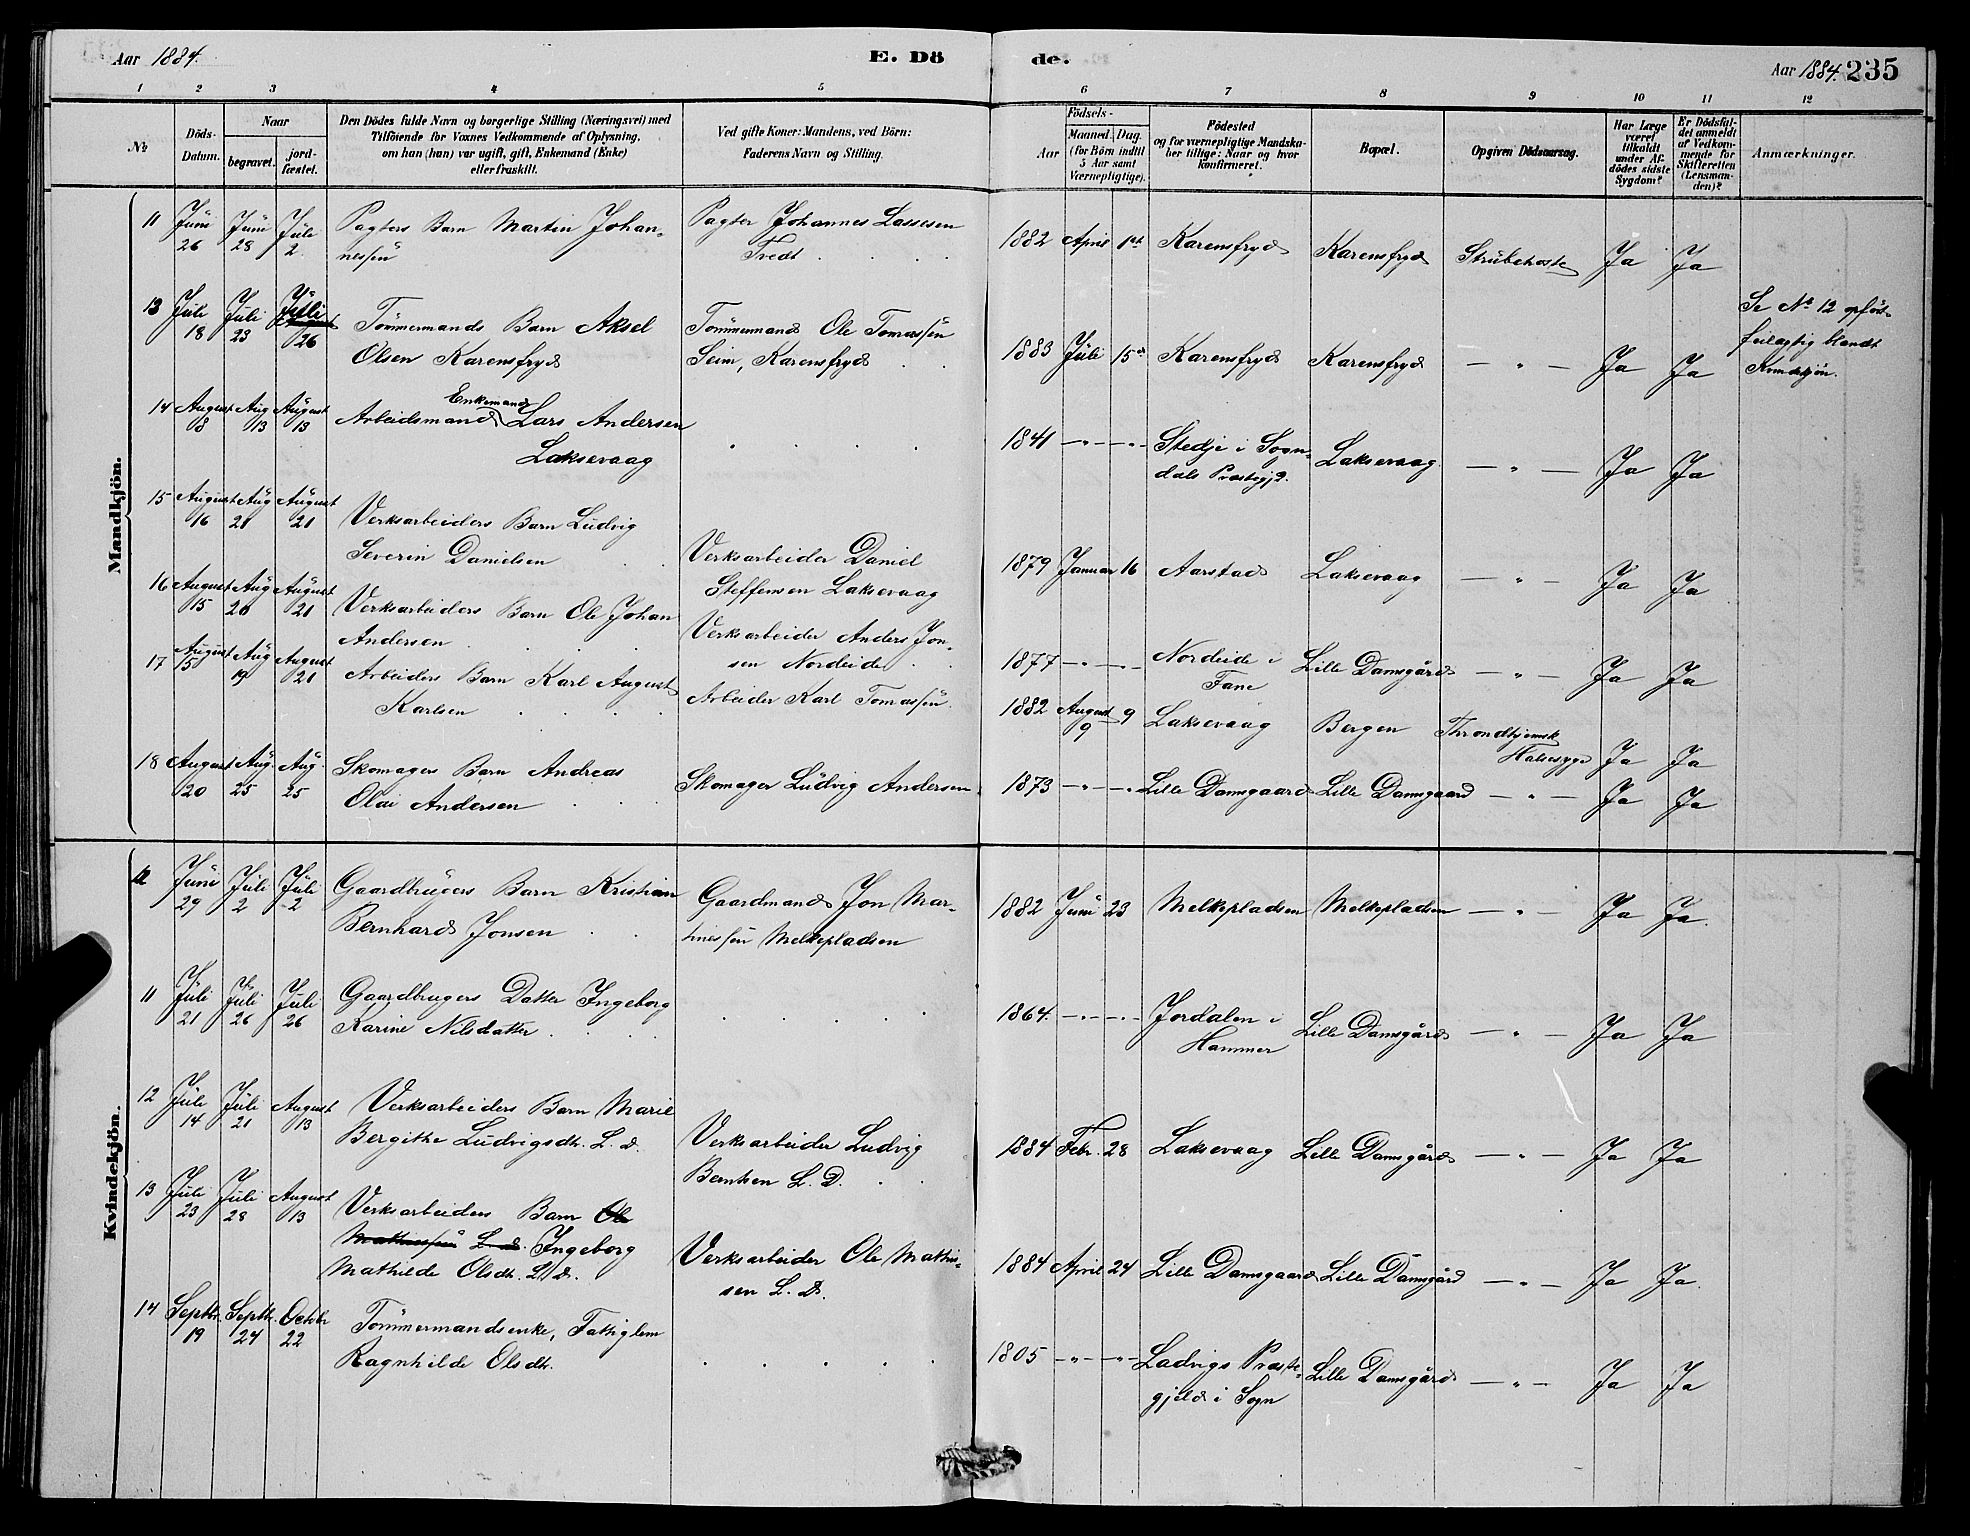 Aar 1884.
E. Dö
de.
Aar 1884. 235
1 2 3 4 5 6 7 8 9 10 11 12
№
Döds-
Datum.
Naar
begravet.
jord-
fæstet.
Den Dödes fulde Navn og borgerlige Stilling (Næringsvei) med
Tilföiende for Voxnes Vedkommende af Oplysning,
om han (hun) var ugift, gift, Enkemand (Enke)
eller fraskilt.
Ved gifte Koner: Mandens, ved Börn:
Faderens Navn og Stilling.
Födsels-
Aar
Maaned. Dag.
(for Börn indtil
5 Aar samt
Værnepligtige).
Födested
og for værnepligtige Mandska-
ber tillige: Naar og hvor
konfirmeret.
Bopæl.
Opgiven Dödsaarsag.
Har Læge
været
tilkaldt
under Af-
dödes sidste
Sygdom?
Er Dödsfal-
det anmeldt
af Vedkom-
mende for
Skifteretten
(Lensman-
den)?
Anmærkninger.
Mandkjön.
11 Juni 26 Juni 28 Juli 2 Pagters Barn Martin Johan-
nessen
Pagter Johannes Lassesen
Tvedt
1882 April 1st Karensfryd Karensfryd Strubehoste Ja Ja
13 Juli 18 Juli 23 Juli 26 Tömmermands Barn Aksel
Olsen Karensfryd
Tömmermand Ole Tomassen
Seim, Karensfryd
1883 Juli 15de Karensfryd Karensfryd — " — Ja Ja
Se No 12 opfört
feilagtig blandt
Kvindekjön.
14 August 8 Aug 13 August 13 Arbeidsmand Enkemand Lars Andersen
Laksevaag
1841 — " — " — Stedje i Sogn-
dals Præstegjd. Laksevaag — " — Ja Ja
15 August 16 Aug 21 August 21 Verksarbeiders Barn Ludvig
Severin Danielsen
Verksarbeider Daniel
Steffensen Laksevaag
1879 Januar 16 Aarstad Laksevaag — " — Ja Ja
16 August 15 Aug 20 August 21 Verksarbeiders Barn Ole Johan
Andersen
Verksarbeider Anders Jon-
sen Nordeide
1877 — " — " — Nordeide i
Fane Lille Damsgård — " — Ja Ja
17 August 15 Aug 19 August 21 Arbeiders Barn Karl August
Karlsen
Arbeider Karl Tomassen
1882 August 9 9 Laksevaag Bergen Throndhjemsk
Halssyge Ja Ja
18 August 20 Aug. 25 Aug. 25 Skomagers Barn Andreas
Olai Andersen
Skomager Ludvig Andersen
1873 — " — " Lille Damsgaard Lille Damsgaard — " — Ja Ja
Kvindekjön.
12 Juni 29 Juli 2 Juli 2 Gaardbrugers Barn Kristian
Bernhard Jonsen
Gaardmand Jon Mar-
tinessen Melkepladsen
1882 Juni 23 Melkepladsen Melkepladsen — " — Ja Ja.
11 Juli 21 Juli 26 Juli 26 Gaardbrugers Datter Ingeborg
Karine Nilsdatter
1864. — " — " — Jordalen i
Hammer Lille Damsgård — " — Ja Ja
12 Juli 14 Juli 21 August 13 Verksarbeiders Barn Marie
Bergithe Ludvigsdtr. L. D.
Verksarbeider Ludvig
Berntsen L. D.
1884 Febr. 28 Laksevaag Lille Damsgård — " — Ja Ja
13 Juli 23 Juli 28 August 13 Verksarbeiders Barn Ole
Mathiessen L. D. Ingeborg
Mathilde Olsdtr. L. D.
Verksarbeider Ole Mathis-
sen L. D.
1884 April 24 Lille Damsgaard Lille Damsgård — " — Ja Ja.
14 Septbr. 19 Septbr. 24 Octobr 22 Tömmermandsenke, Fattiglem
Ragnhilde Olsdtr.
1805 — " — " — Ladvigs Præste-
gjeld i Sogn Lille Damsgård — " — Ja Ja